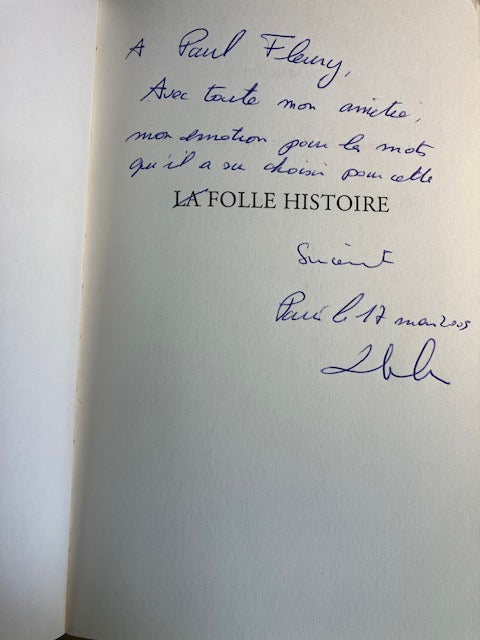 A Paul Fleury,
Avec toute mon amitié,
mon émotion pour les mots
qu'il a su choisir pour cette
LA FOLLE HISTOIRE
Paris le 17 mai 2005